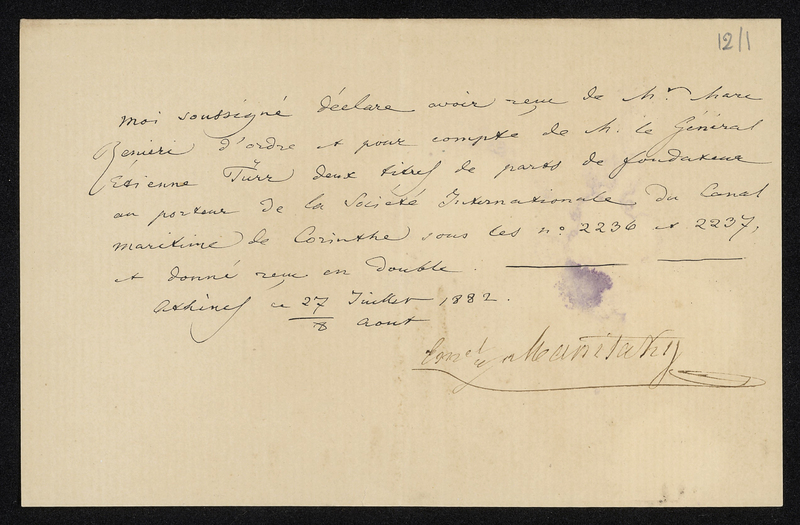 12/1
Moi soussigné déclare avoir reçu de Mr Marc
Renieri d'ordre et pour compte de M. le Général
Etienne Türr deux titres de parts de fondateur
au porteur de la Société Internationale du Canal
maritime de Corinthe sous les no. 2236 et 2237,
et donné reçu en double.
Athènes ce 27 Juillet 1882.
8 aout
Manitaky